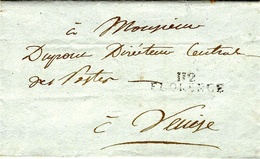 à Monsieur
Dupout Directeur Central
des Postes
112
FLORENCE
à Venise